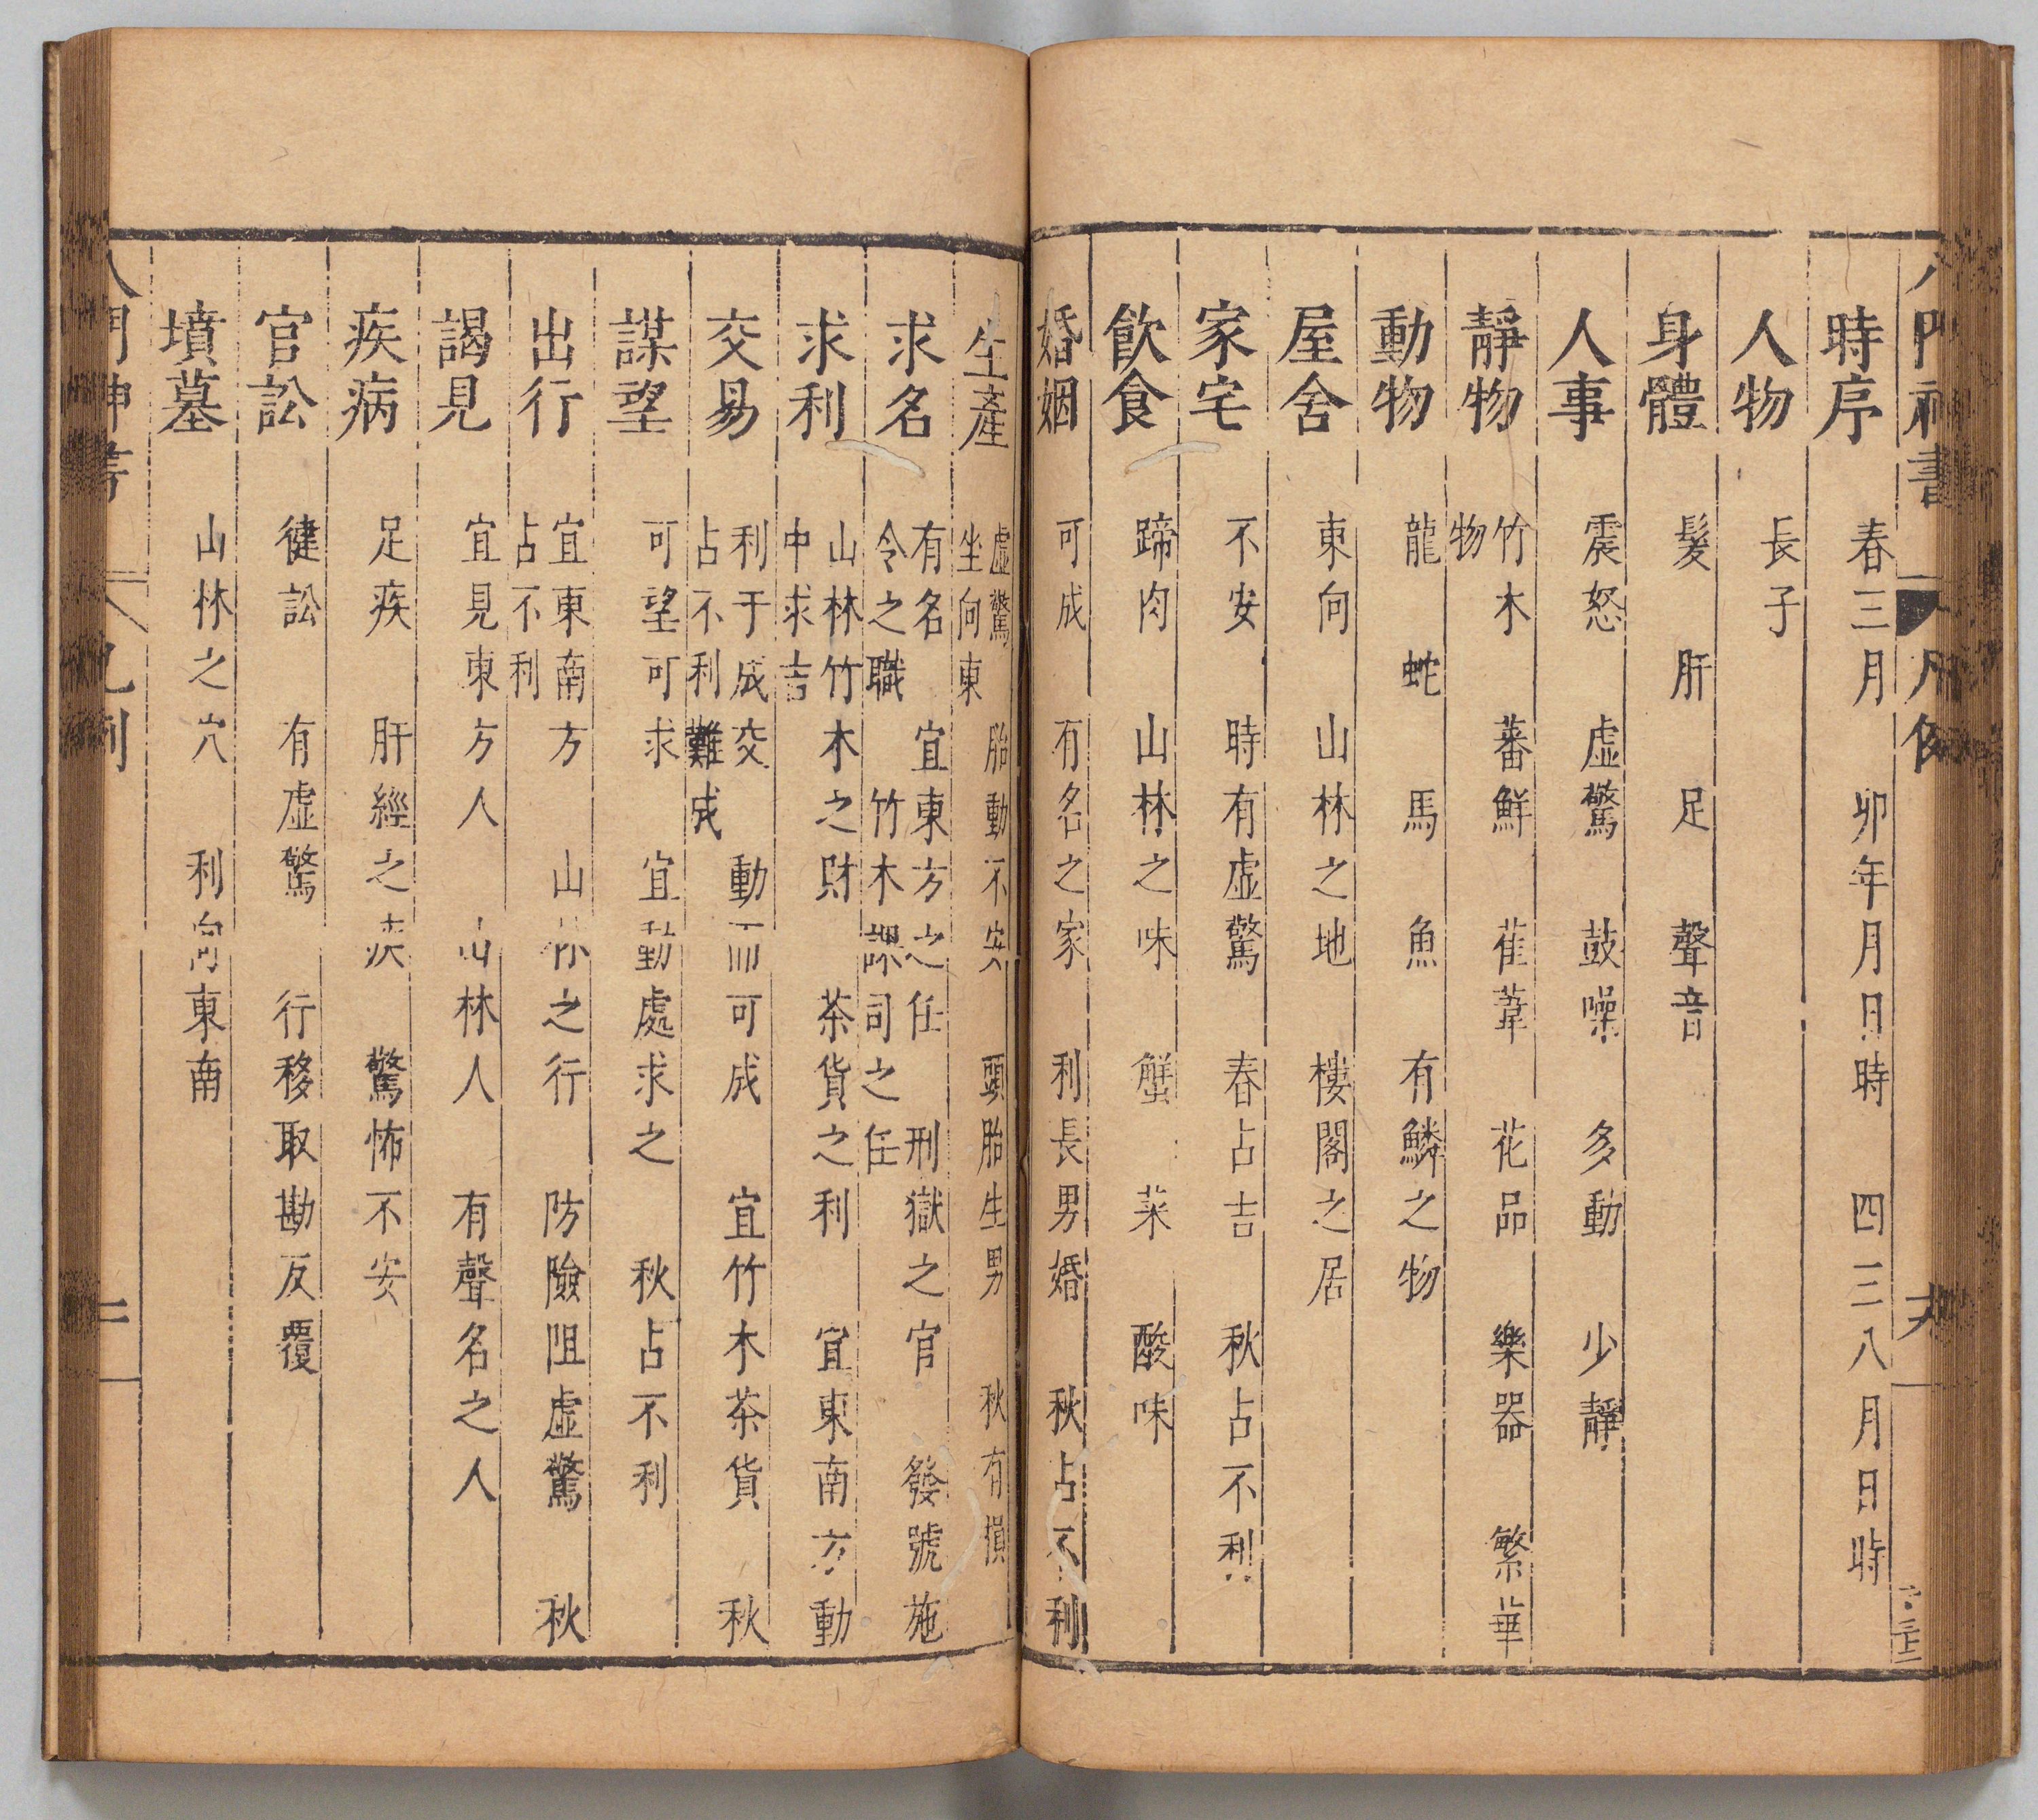 時序 春三月 卯年月日時 四三八月日時
人物 長子
身體 髮 肝 足 聲音
人事 震怒 虛驚 鼓噪 多動 少靜
靜物 竹木 蕃鮮 萑葦 花品 樂器 繁華
物
動物 龍 蛇 馬 魚 有鱗之物
屋舍 東向 山林之地 樓閣之居
家宅 不安 時有虛驚 春占吉 秋占不利
飲食 蹄肉 山林之味 蟹 菜 酸味
婚姻 可成 有名之家 利長男婚 秋占不利
生產 虛驚 胎動不安 頭胎生男 秋有損
坐向東
求名 有名 宜東方之任 刑獄之官 發號施
令之職 竹木課司之任
求利 山林竹木之財 茶貨之利 宜東南方動
中求吉
交易 利于成交 動而可成 宜竹木茶貨 秋
占不利難成
謀望 可望可求 宜動處求之 秋占不利
出行 宜東南方 山林之行 防險阻虛驚 秋
占不利
謁見 宜見東方人 山林人 有聲名之人
疾病 足疾 肝經之疾 驚怖不安
官訟 健訟 有虛驚 行移取勘反覆
墳墓 山林之穴 利向東南